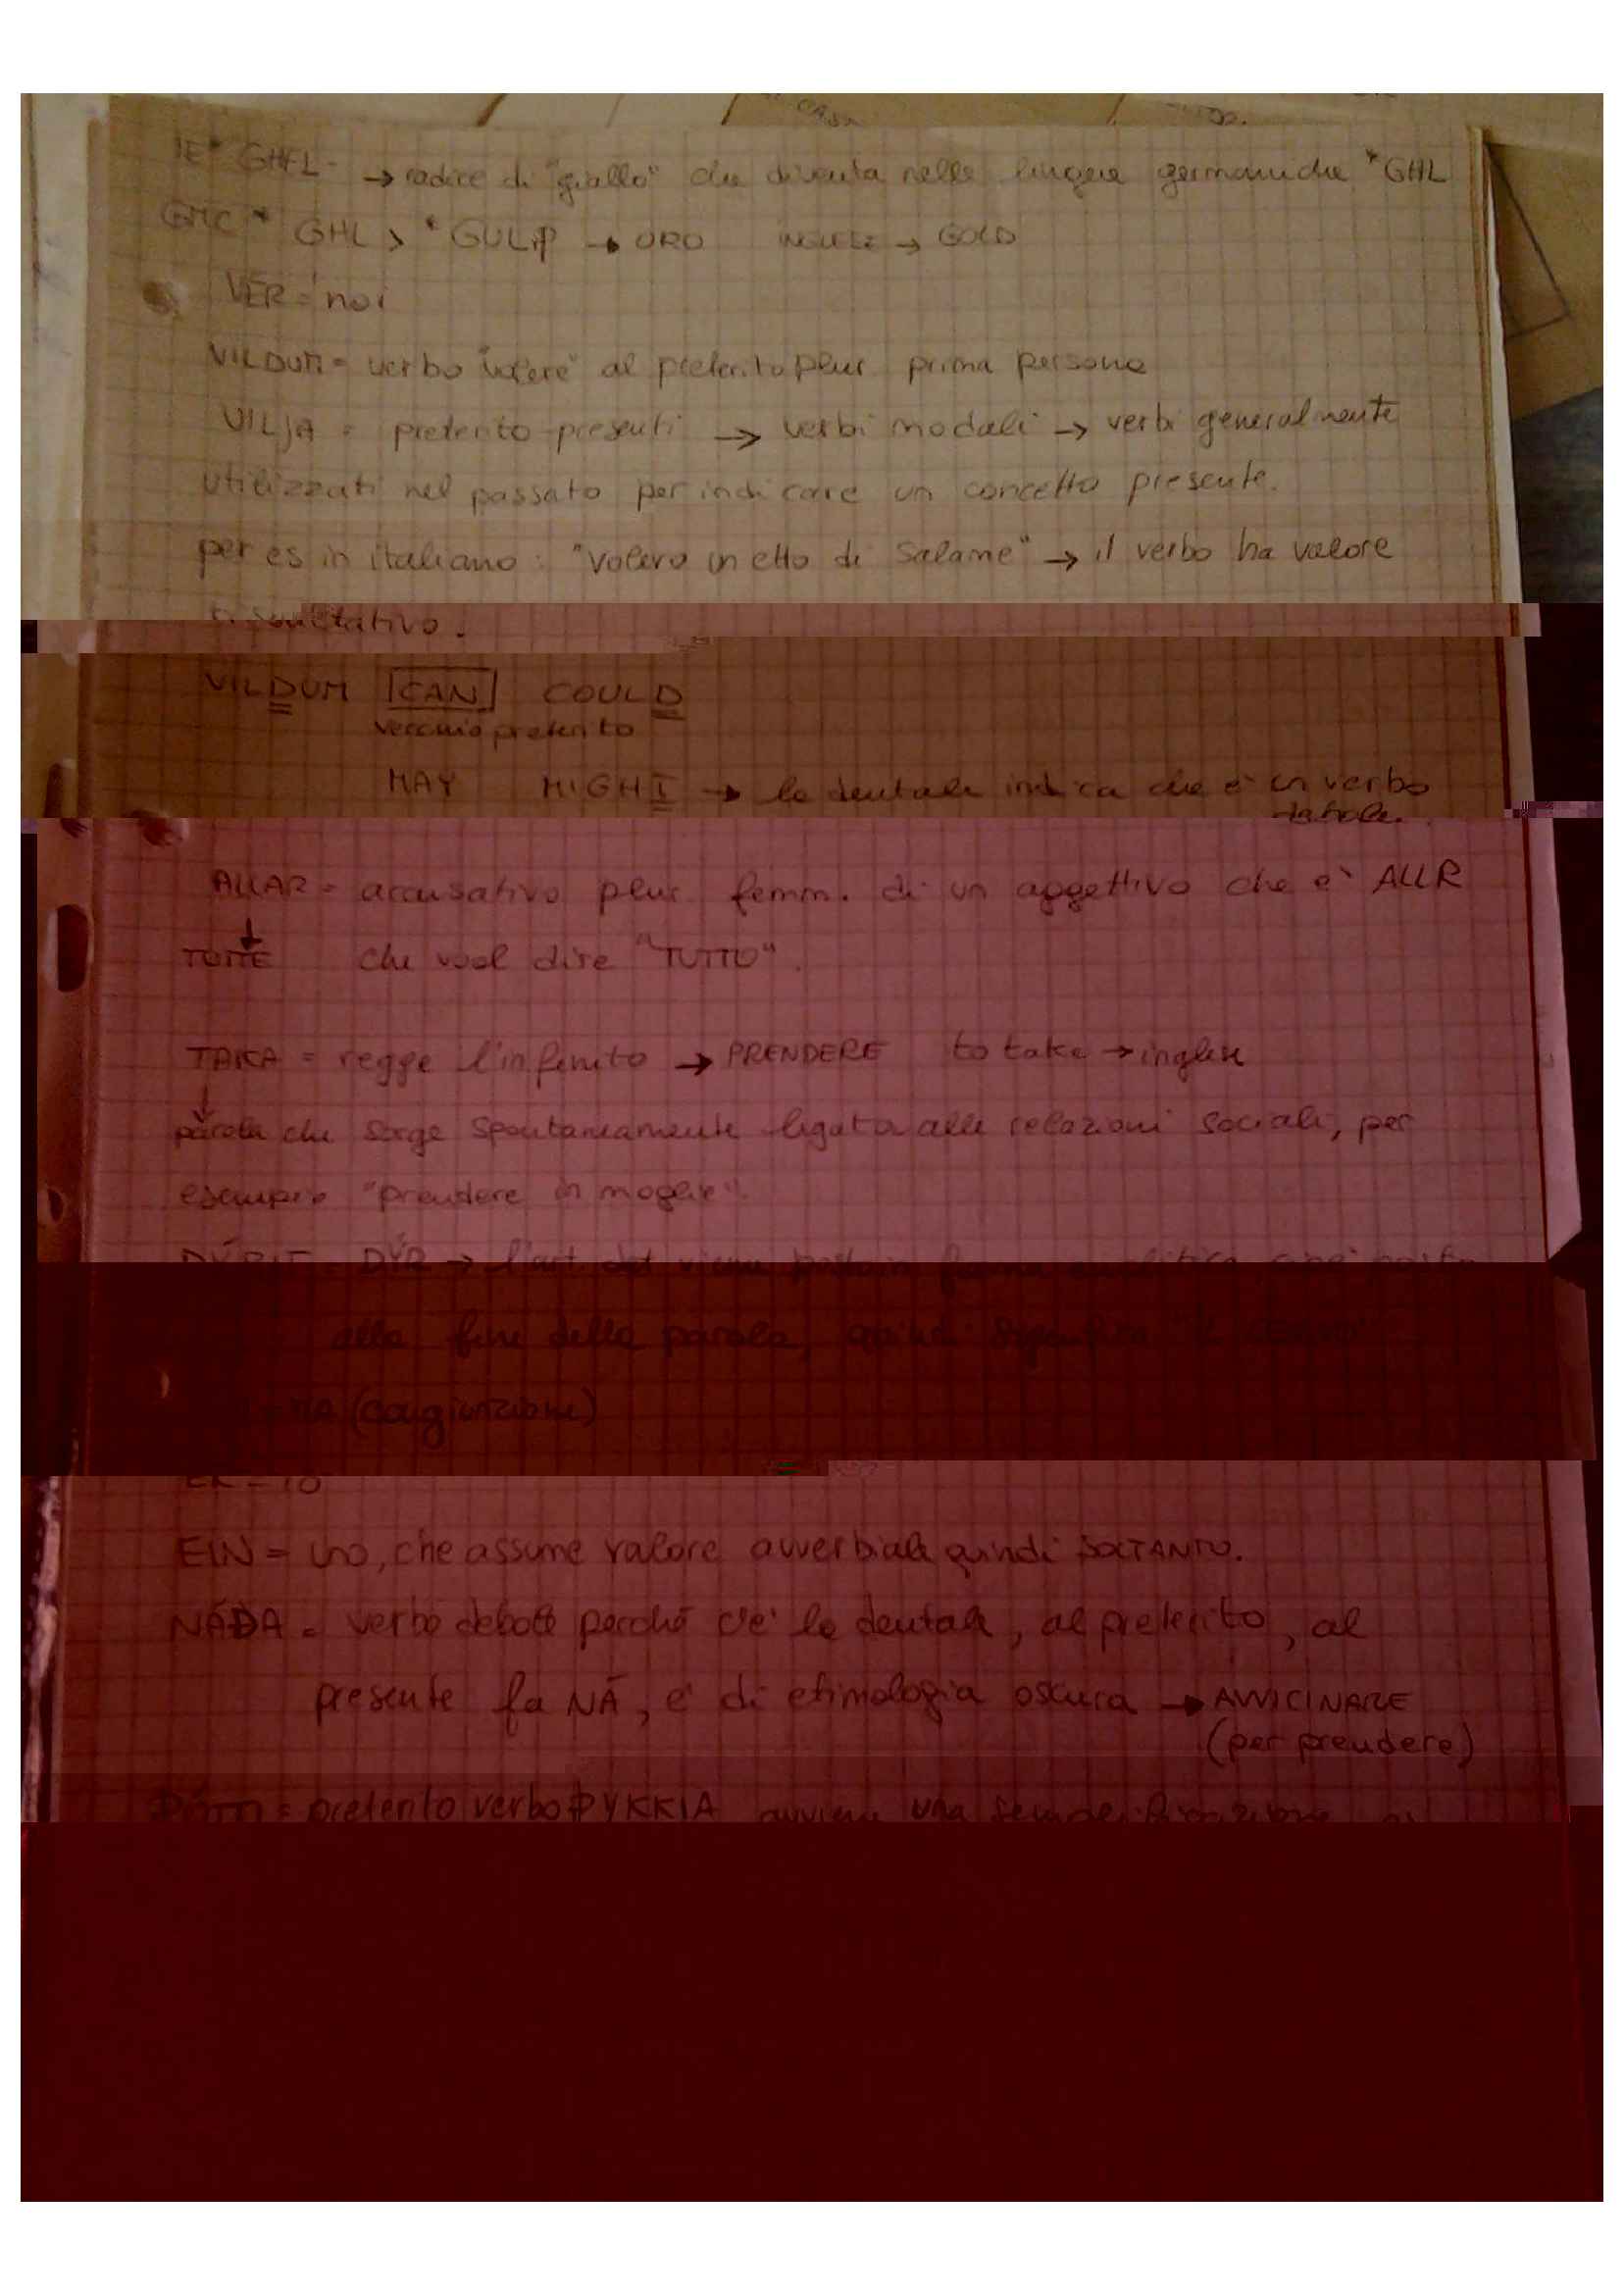 IE* GHEL- → radice di "giallo" che diventa nelle lingue germaniche *GHL
GMC * GHL > *GULÞ → ORO INGLESE → GOLD
VÉR = noi
VILDUM = verbo "volere" al preterito plur prima persona
VILJA = preterito-presenti → verbi modali → verbi generalmente
utilizzati nel passato per indicare un concetto presente.
per es in italiano: "Volevo un etto di salame" → il verbo ha valore
risultativo.
VILDUM CAN COULD
vecchio preterito
MAY MIGHT → la dentale indica che è un verbo
debole.
ALLAR = accusativo plur. femm. di un aggettivo che è ALLR
TUTTE che vuol dire "TUTTO".
TAKA = regge l'infinito → PRENDERE to take → inglese
parola che sorge spontaneamente legata alle relazioni sociali, per
esempio "prendere in moglie".
DÝR → l'art det viene posto in forma
alla fine della parola, quindi significa
MA (congiunzione)
EK = IO
EIN = uno, che assume valore avverbiale quindi SOLTANTO.
NÁÐA = verbo debole perché c'è la dentale, al preterito, al
presente fa NÁ, è di etimologia oscura → AVVICINARE
(per prendere)
= preterito verbo ÞYKKIA avviene una semplificazione